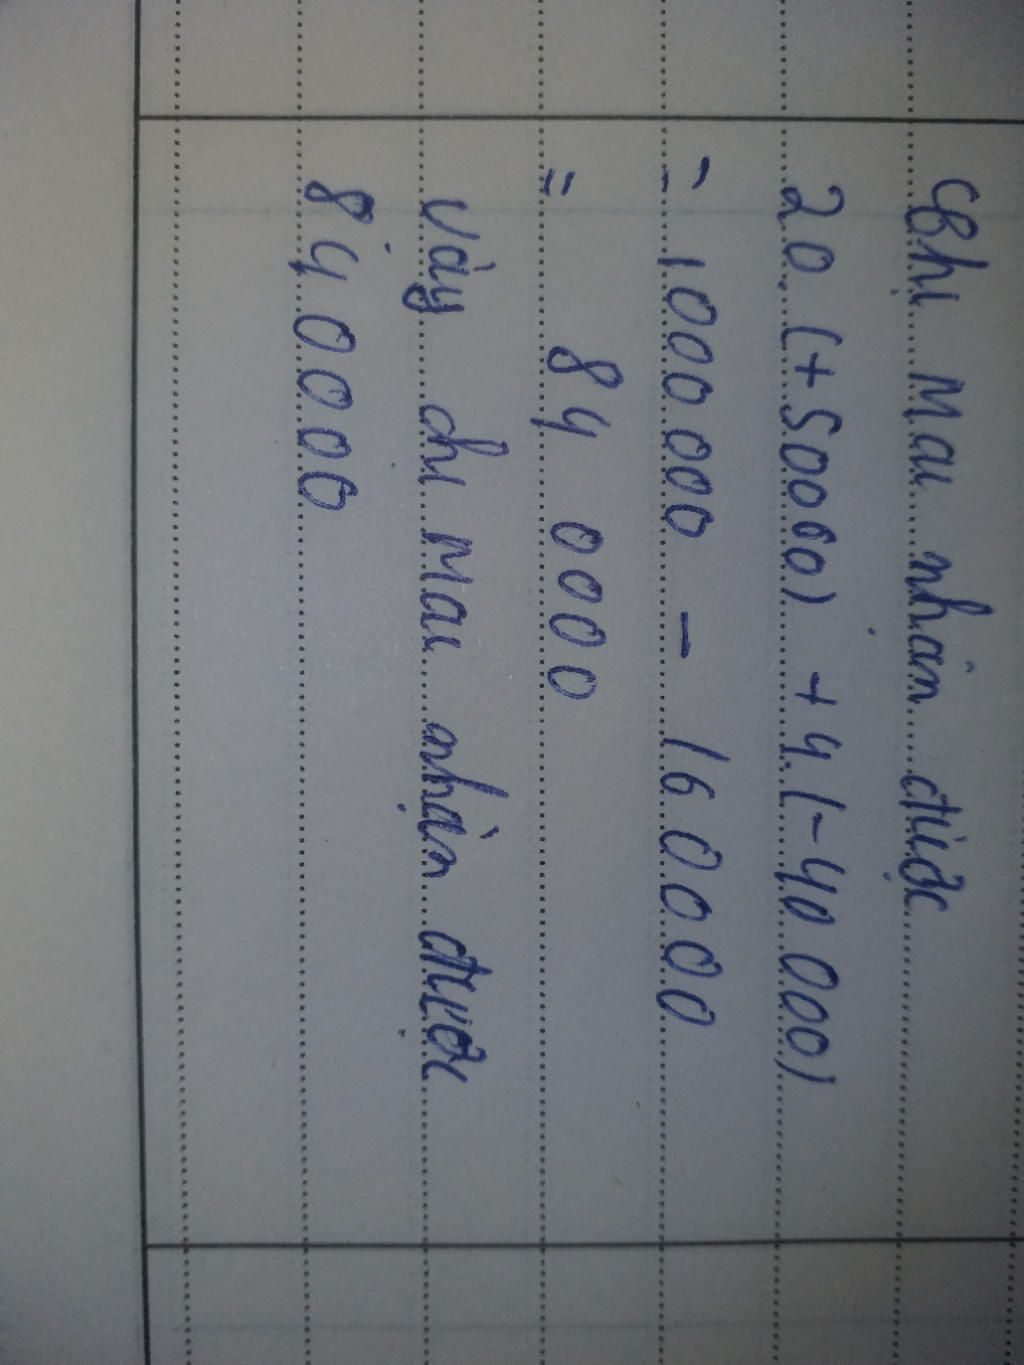 Chị Mai nhận được
20.(+50000) + 4.(-40 000)
= 1000 000 - 160000
= 84 0000
Vậy chị Mai nhận được
840000